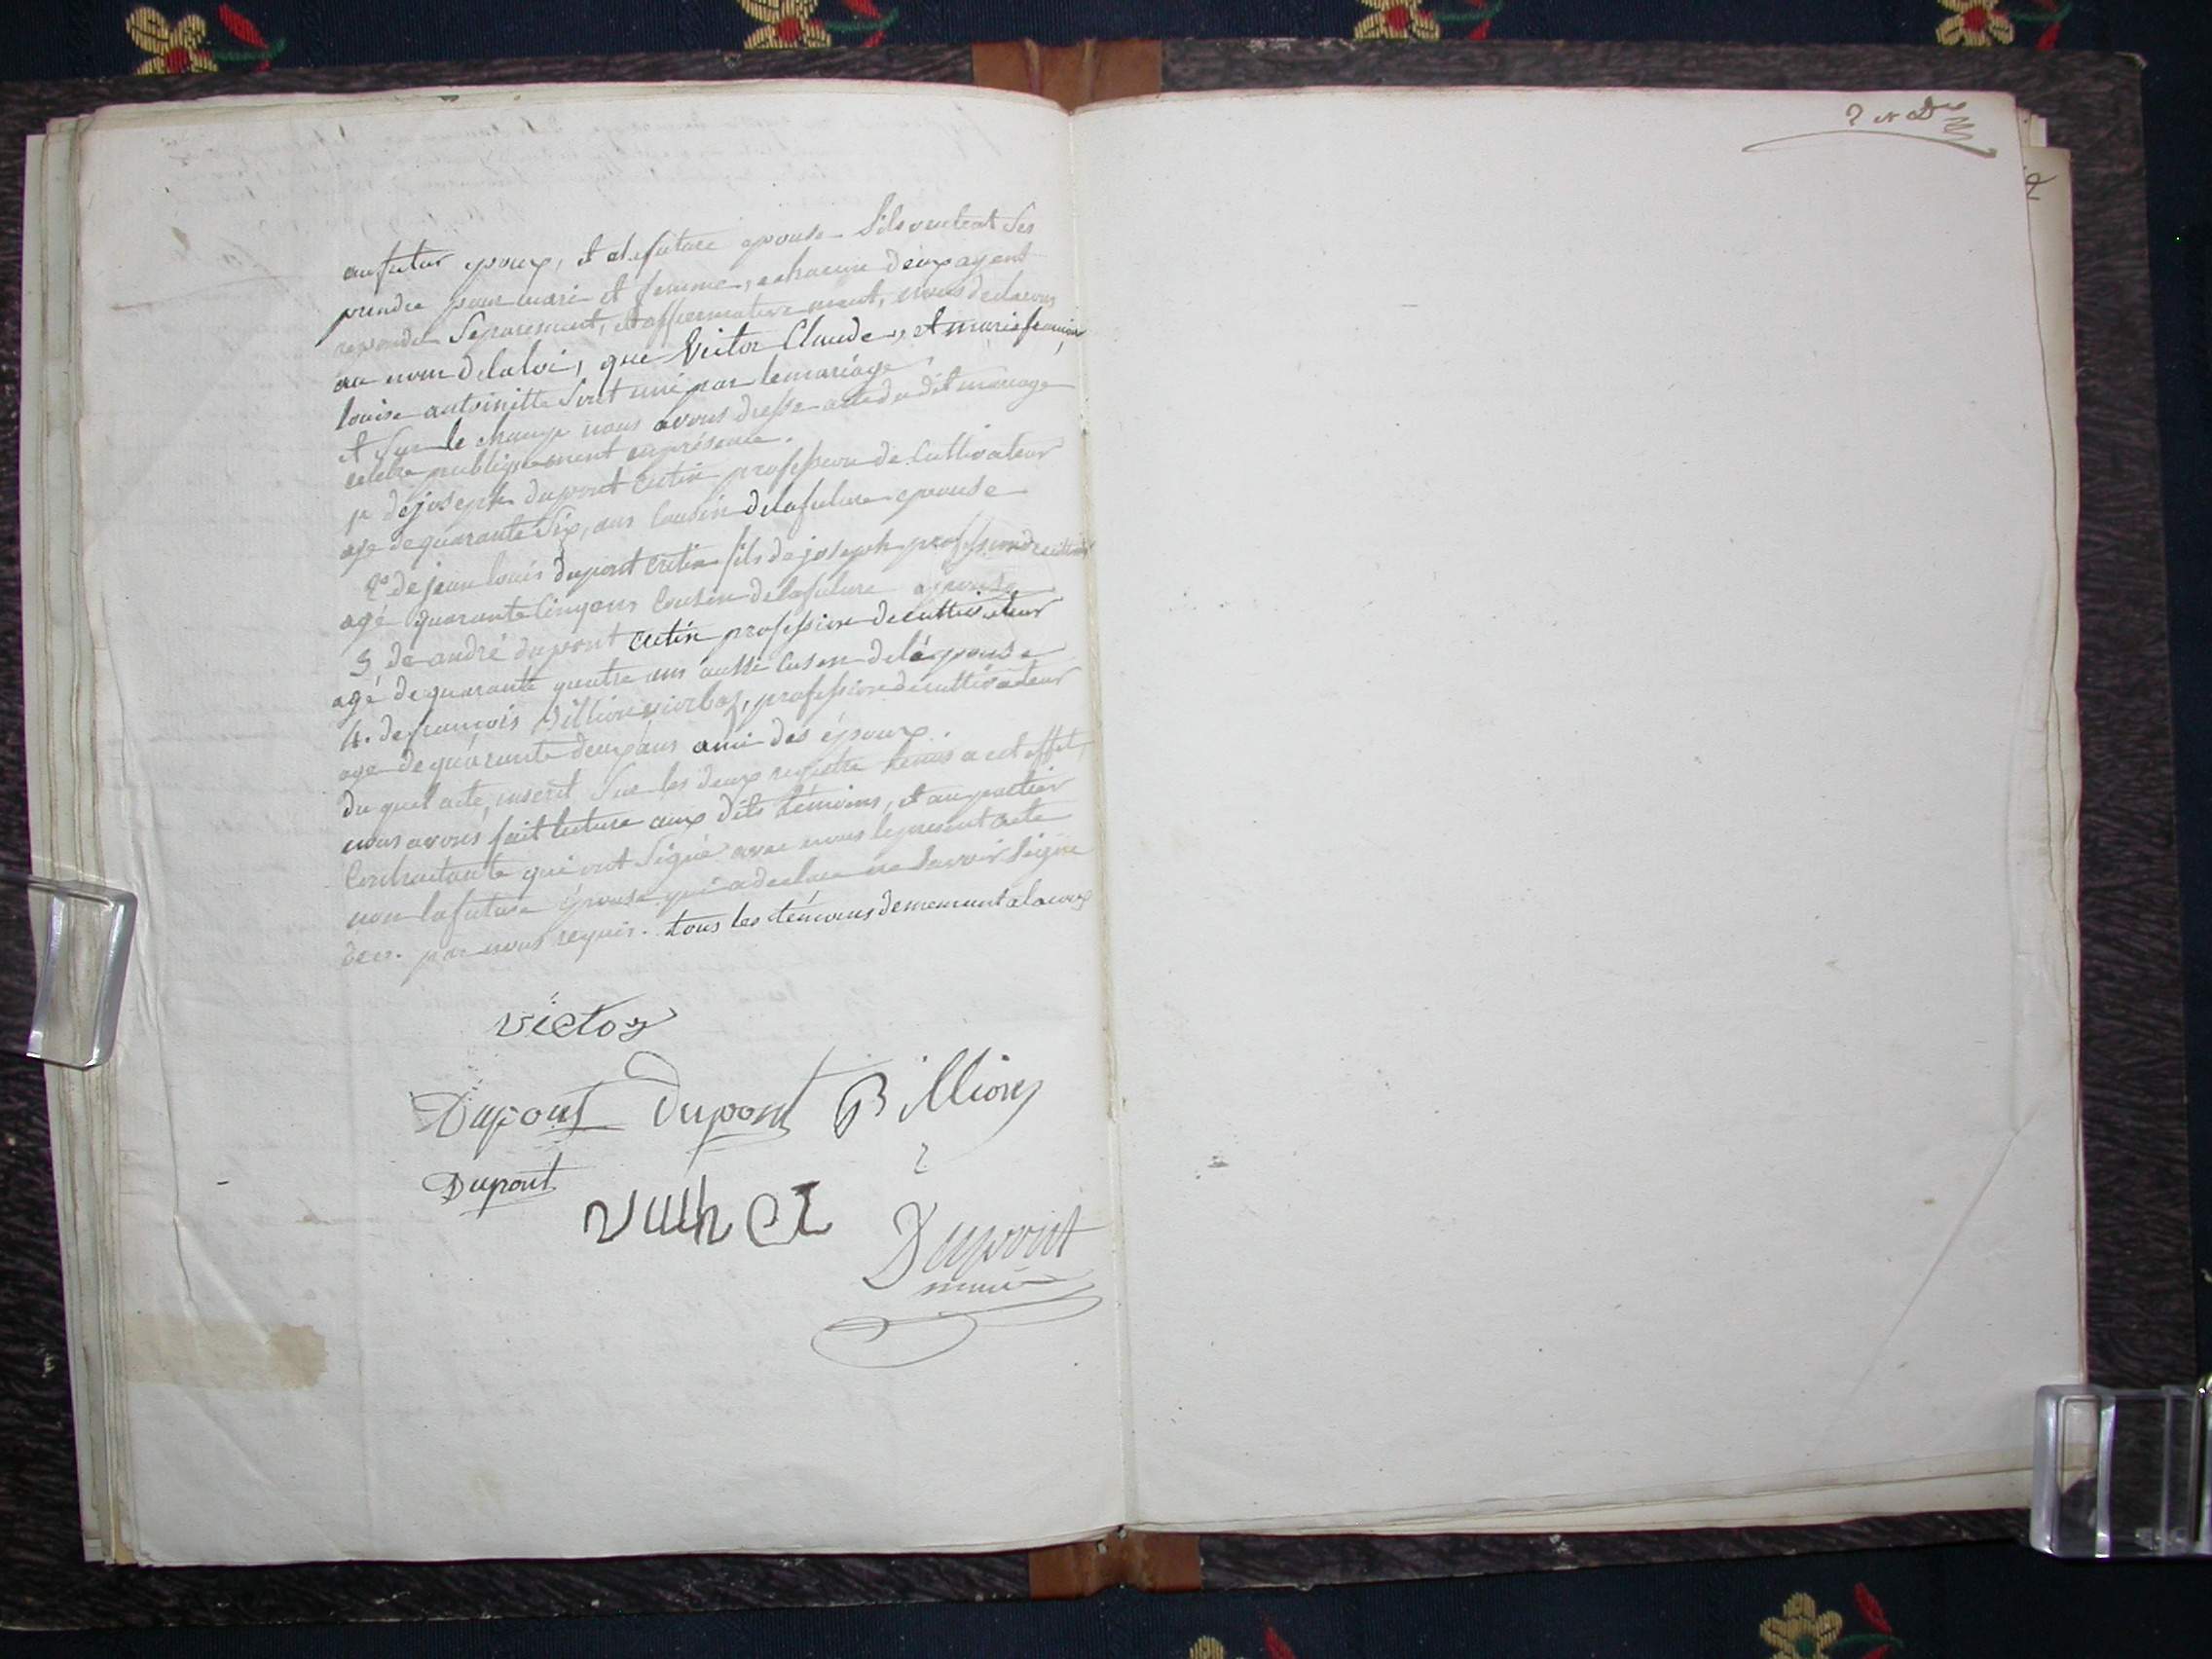 au futur epoux, et a la future epouse S'ils veulent Ses
prendre pour mari et femme, chacun d'eux ayent
repondu Separement, et affirmativement, nous declarons
au nom delaloi, que Victor Claude, et marie
louise antoinette Sont uni par le mariage
et Sur le champ nous avons dresse acte du dit mariage
celebre publiquement en présence.
1r de joseph dupont cretin profession de Cultivateur
age de quarante Six, ans Cousin delafuture epouse
2o de jean louis dupont cretin fils de joseph profession de
agé quarante Cinq ans Cousin delafuture epouse
3 de andré dupont cretin profession de cultivateur
agé de quarante quatre ans aussi Cusin delépouse
4. de francois Billion, profession de cultivateur
age de quarante deux ans ami des époux.
du quel acte, inscrit Sur les deux registre tenus a cet effet,
nous avons fait lecture aux dits témoins, et au parties
Contractante qui ont Signé avec nous le present acte
non lafuture épouse qui a declare ne Savoir Signe
de par nous requis. tous les témoins demeurant
victor
Dupont dupont Billion
Dupont
vuihet
Dupont
maire